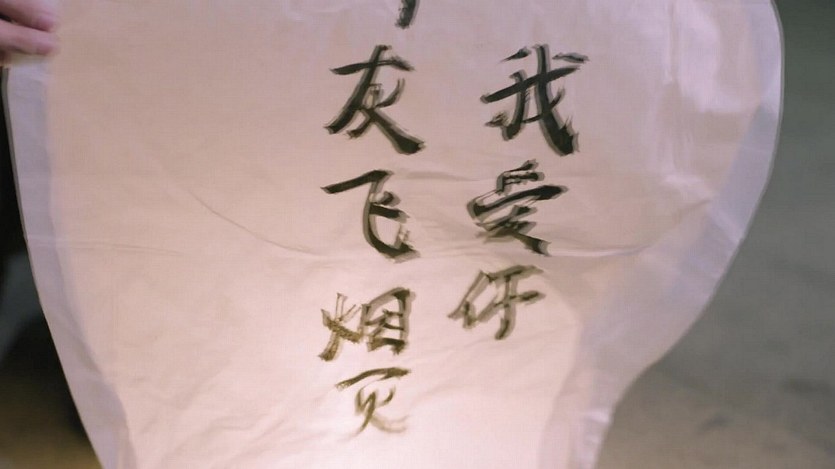 我爱你
灰飞烟灭